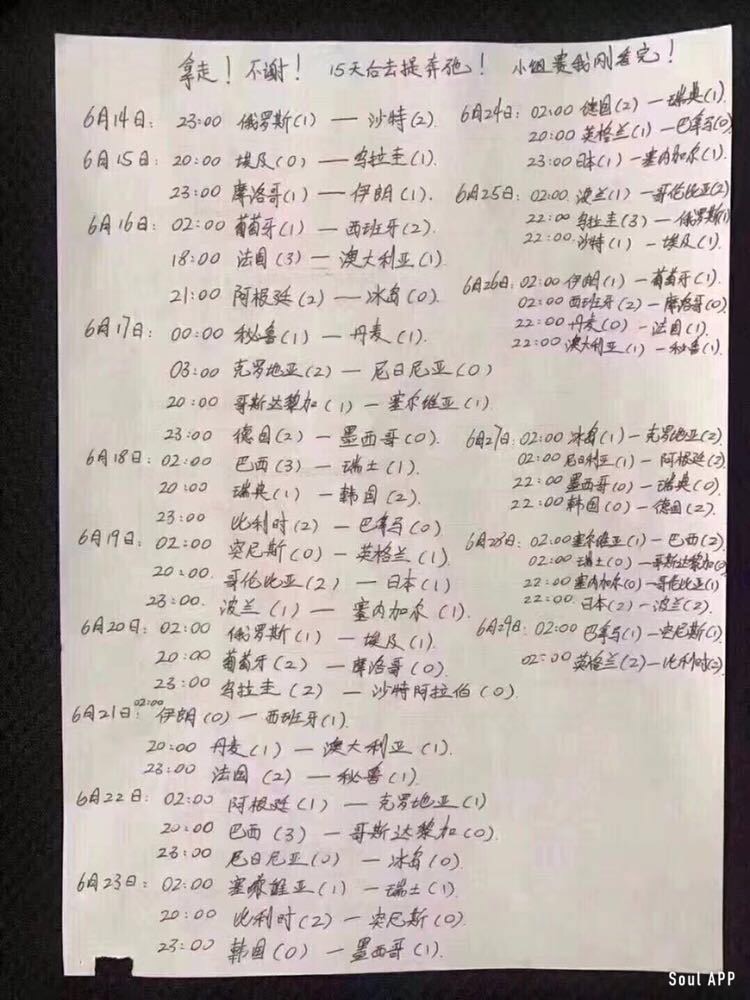 拿走！不谢！ 15天后去提奔驰！ 小组赛我刚看完！
6月14日： 23:00 俄罗斯(1) — 沙特(2)
6月15日： 20:00 埃及(0) — 乌拉圭(1).
23:00 摩洛哥(1) — 伊朗(1).
6月16日： 02:00 葡萄牙(1) — 西班牙(2)
18:00 法国(3) — 澳大利亚(1)
21:00 阿根廷(2) — 冰岛(0).
6月17日： 00:00 秘鲁(1) — 丹麦(1).
03:00 克罗地亚(2) — 尼日尼亚(0)
20:00 哥斯达黎加(1) — 塞尔维亚(1).
23:00 德国(2) — 墨西哥(0).
6月18日： 02:00 巴西(3) — 瑞士(1).
20:00 瑞典(1) — 韩国(2).
23:00 比利时(2) — 巴拿马(0)
6月19日： 02:00 突尼斯(0) — 英格兰(1).
20:00. 哥伦比亚(2) — 日本(1)
23:00. 波兰(1) — 塞内加尔(1).
6月20日： 02:00 俄罗斯(1) — 埃及(1).
20:00 葡萄牙(2) — 摩洛哥(0).
23:00 乌拉圭(2) — 沙特阿拉伯(0).
6月21日： 02:00 伊朗(0) — 西班牙(1).
20:00 丹麦(1) — 澳大利亚(1).
23:00 法国(2) — 秘鲁(1).
6月22日： 02:00 阿根廷(1) — 克罗地亚(1)
20:00 巴西(3) — 哥斯达黎加(0).
23:00 尼日尼亚(0) — 冰岛(0).
6月23日： 02:00 塞尔维亚(1) — 瑞士(1).
20:00 比利时(2) — 突尼斯(0).
23:00 韩国(0) — 墨西哥(1).
6月24日： 02:00 德国(2) — 瑞典(1).
20:00 英格兰(1) — 巴拿马(0)
23:00 日本(1) — 塞内加尔(1).
6月25日： 02:00. 波兰(1) — 哥伦比亚(2)
22:00 乌拉圭(3) — 俄罗斯(1)
22:00. 沙特(1) — 埃及(1).
6月26日： 02:00 伊朗(1) — 葡萄牙(1).
02:00 西班牙(2) — 摩洛哥(0).
22:00 丹麦(0) — 法国(1).
22:00 澳大利亚(1) — 秘鲁(1).
6月27日： 02:00 冰岛(1) — 克罗地亚(2)
02:00 尼日利亚(1) — 阿根廷(2)
22:00 墨西哥(0) — 瑞典(0)
22:00 韩国(0) — 德国(2).
6月28日： 02:00 塞尔维亚(1) — 巴西(2)
02:00 瑞士(0) — 哥斯达黎加(0)
22:00 塞内加尔(0) — 哥伦比亚(1)
22:00. 日本(2) — 波兰(2).
6月29日： 02:00 巴拿马(1) — 突尼斯(1)
02:00 英格兰(2) — 比利时(2).
Soul APP